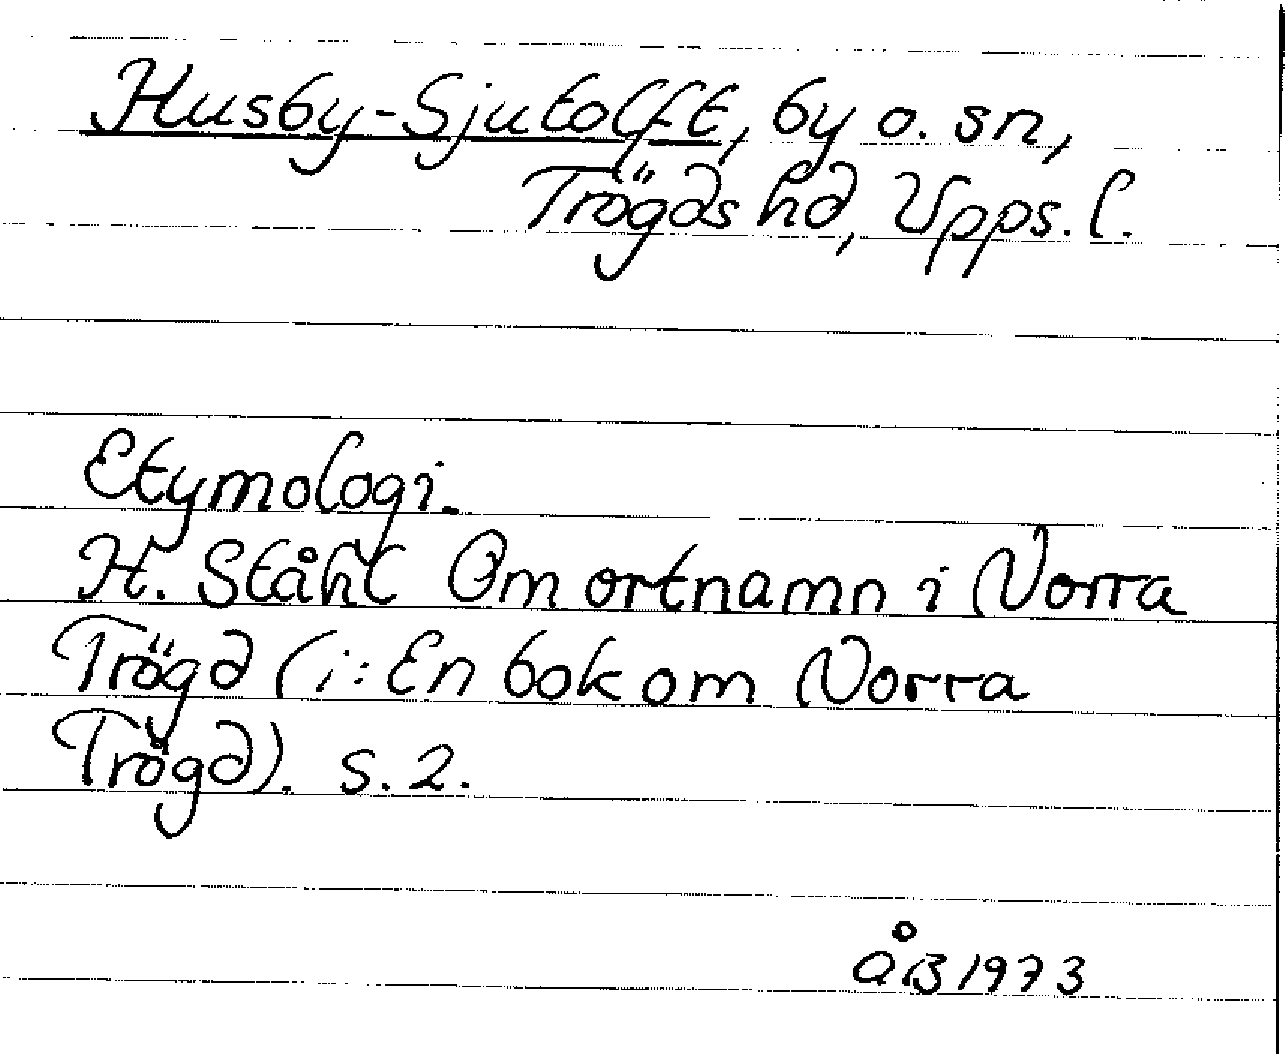 Husby-Sjutolft, by o. sn,
Trögds hd, Upps. l.
Etymologi.
H. Ståhl Om ortnamn i Norra
Trögd (i: En bok om Norra
Trögd). s. 2.
ÅB 1973